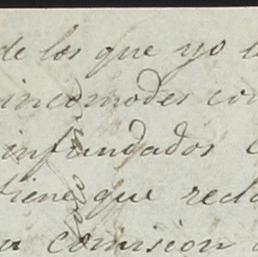 de los que yo
incomodes con
infundados
tiene que recla
comision